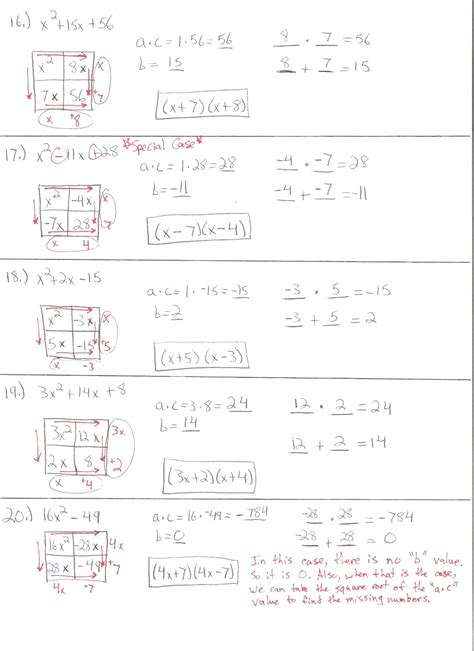 16.) x²+15x+56
a·c=1·56=56
8 · 7 =56
b= 15
8 + 7 =15
x² 8x x
7x 56 +7
x +8
(x+7)(x+8)
17.) x²-11x+28 *Special Case*
a·c=1·28=28
-4 · -7 =28
b=-11
-4 + -7 =-11
x² -4x x
-7x 28 -7
x 4
(x-7)(x-4)
18.) x²+2x-15
a·c=1·-15=-15
-3 · 5 =-15
b=2
-3 + 5 = 2
x² -3x x
5x -15 +5
x -3
(x+5)(x-3)
19.) 3x²+14x+8
a·c=3·8=24
12 · 2 =24
b=14
12 + 2 =14
3x² 12x 3x
2x 8 +2
x +4
(3x+2)(x+4)
20.) 16x²-49
a·c=16·-49=-784
-28 · 28 =-784
b=0
-28 + 28 = 0
16x² -28x 4x
28x -49 +7
4x -7
(4x+7)(4x-7)
In this case, there is no "b" value.
So it is 0. Also, when that is the case,
we can take the square root of the "a·c"
value to find the missing numbers.